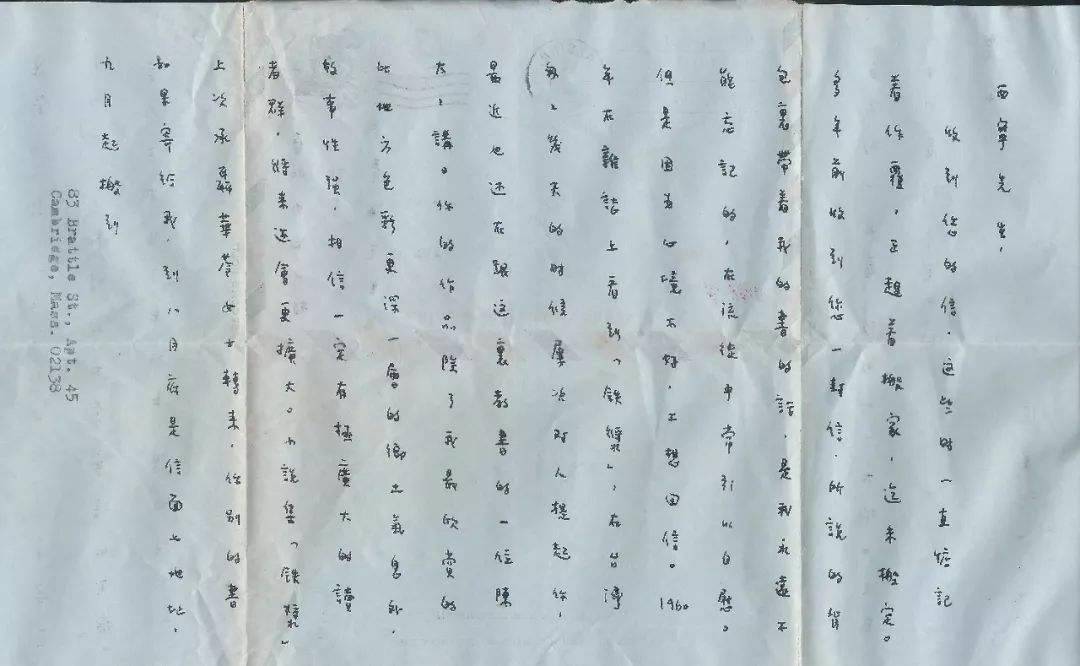 西寧先生，
收到您的信，這些時一直惦記
着作覆，正趕着搬家，迄未搬定。
多年前收到您一封信，所說的背
包裏帶着我的書的話，是我永遠不
能忘記的，在流徙中常引以自慰。
但是因為心境不好，不想回信。1960
年在雜誌上看到「鉄漿」，在台灣
匆〻幾天的時候屢次對人提起你，
最近也还在跟這裏教書的一位陳
太〻講。你的作品除了我最欣賞的
比地方色彩更深一層的鄉土氣息外，
故事性强，相信一定有極廣大的讀
者群，將來还會更擴大。小說集「鉄漿」
上次承聶華苓女士轉來，你別的書
如果寄給我，到八月底是信面上地址，
九月起搬到
83 Brattle St., Apt. 45
Cambridge, Mass. 02138